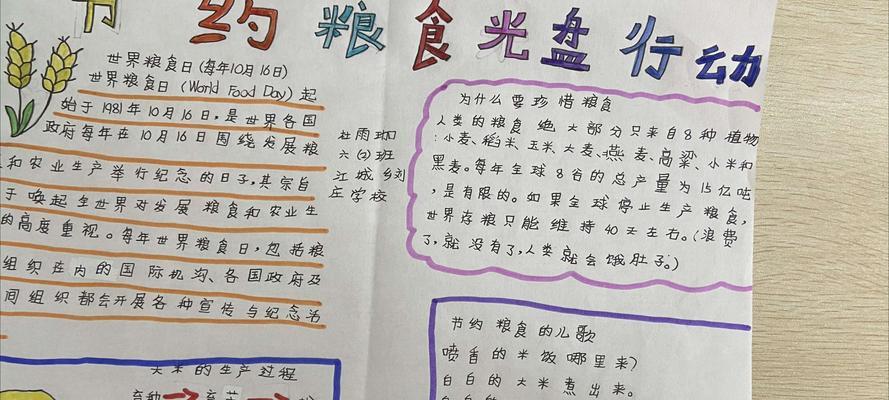 节约粮食光盘行动
世界粮食日(每年10月16日)
世界粮食日(World Food Day)起
始于1981年10月16日,是世界各国
政府每年在10月16日围绕发展粮
和农业生产举行纪念的日子,其宗旨
于唤起全世界对发展粮食和农业生
的高度重视。每年世界粮食日,包括粮
组织在内的国际机沟、各国政府及
间组织都会开展各种宣传与纪念活
杜雨珈
六(2)班
江城乡刘
庄学校
为什么要珍惜粮食
人类的粮食绝大部分只来自8种植物
:小麦、稻米、玉米、大麦、燕麦、高粱、小米和
黑麦。每年全球8谷的总产量为15亿吨
,是有限的。如果全球停止生产粮食,
世界存粮只能维持40天左右。(浪费
了,就没有了,人类就会饿肚子。)
节约粮食的儿歌
喷香的米饭哪里来)
白白的大米煮出来。
大米的生产过程
育种